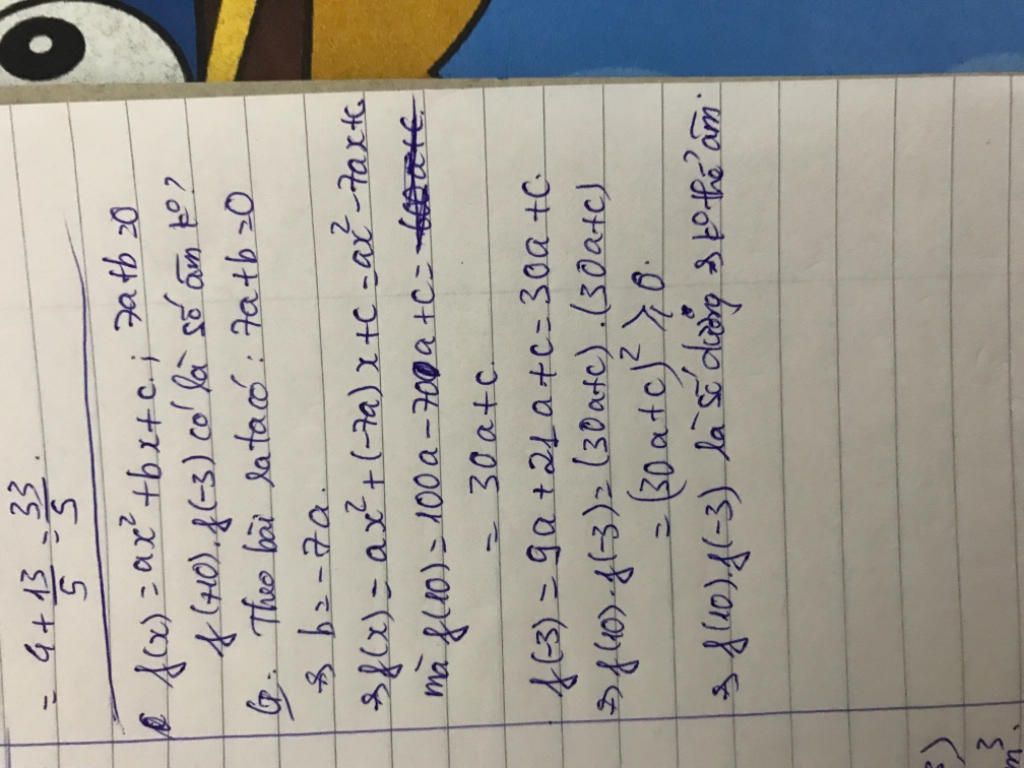 = 4 + 13/5 = 33/5.
f(x) = ax² + bx + c ; 7a+b=0
f(+10). f(-3) có là số âm k°?
Gp: Theo bài ra ta có: 7a+b=0
=> b = -7a.
=> f(x) = ax² + (-7a)x + c = ax² - 7ax+c.
mà f(10) = 100a - 70a + c =
= 30a + c.
f(-3) = 9a + 21a + c = 30a + c.
=> f(10). f(-3) = (30a+c). (30a+c)
= (30a + c)² ⩾ 0.
=> f(10). f(-3) là số dương => k° thể âm.
3)
m³.